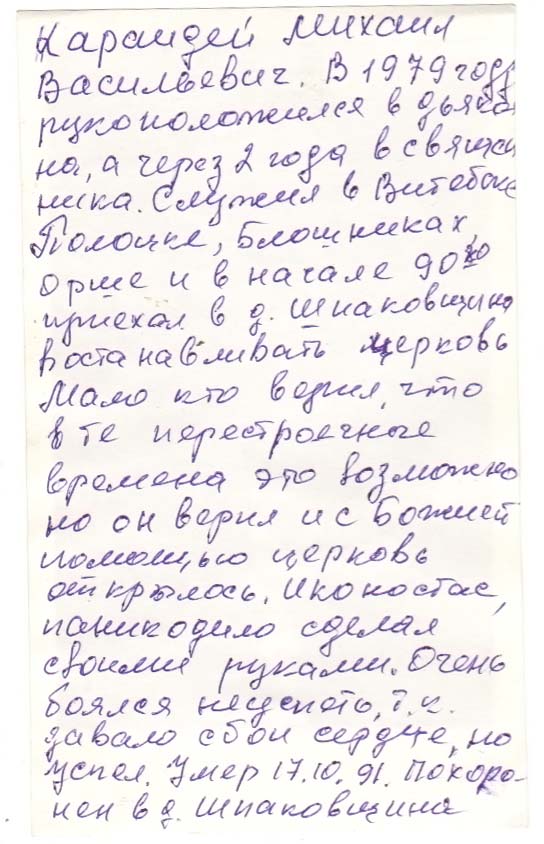 Карандей Михаил
Васильевич. В 1979 году
рукоположился в дьяко
на, а через 2 года в священ
ника. Служил в Витебске
Полоцке, Блошниках,
Орше и в начале 90хо
приехал в д. Шпаковщина
востанавливать церковь
Мало кто верил, что
в те перестроечные
времена это возможно
но он верил и с Божией
помощью церковь
открылось. Иконостас,
паникодило сделал
своими руками. Очень
боялся неуспеть, т.к.
давало сбои сердце, но
успел. Умер 17.10.91. Похоро-
нен в д. Шпаковщина